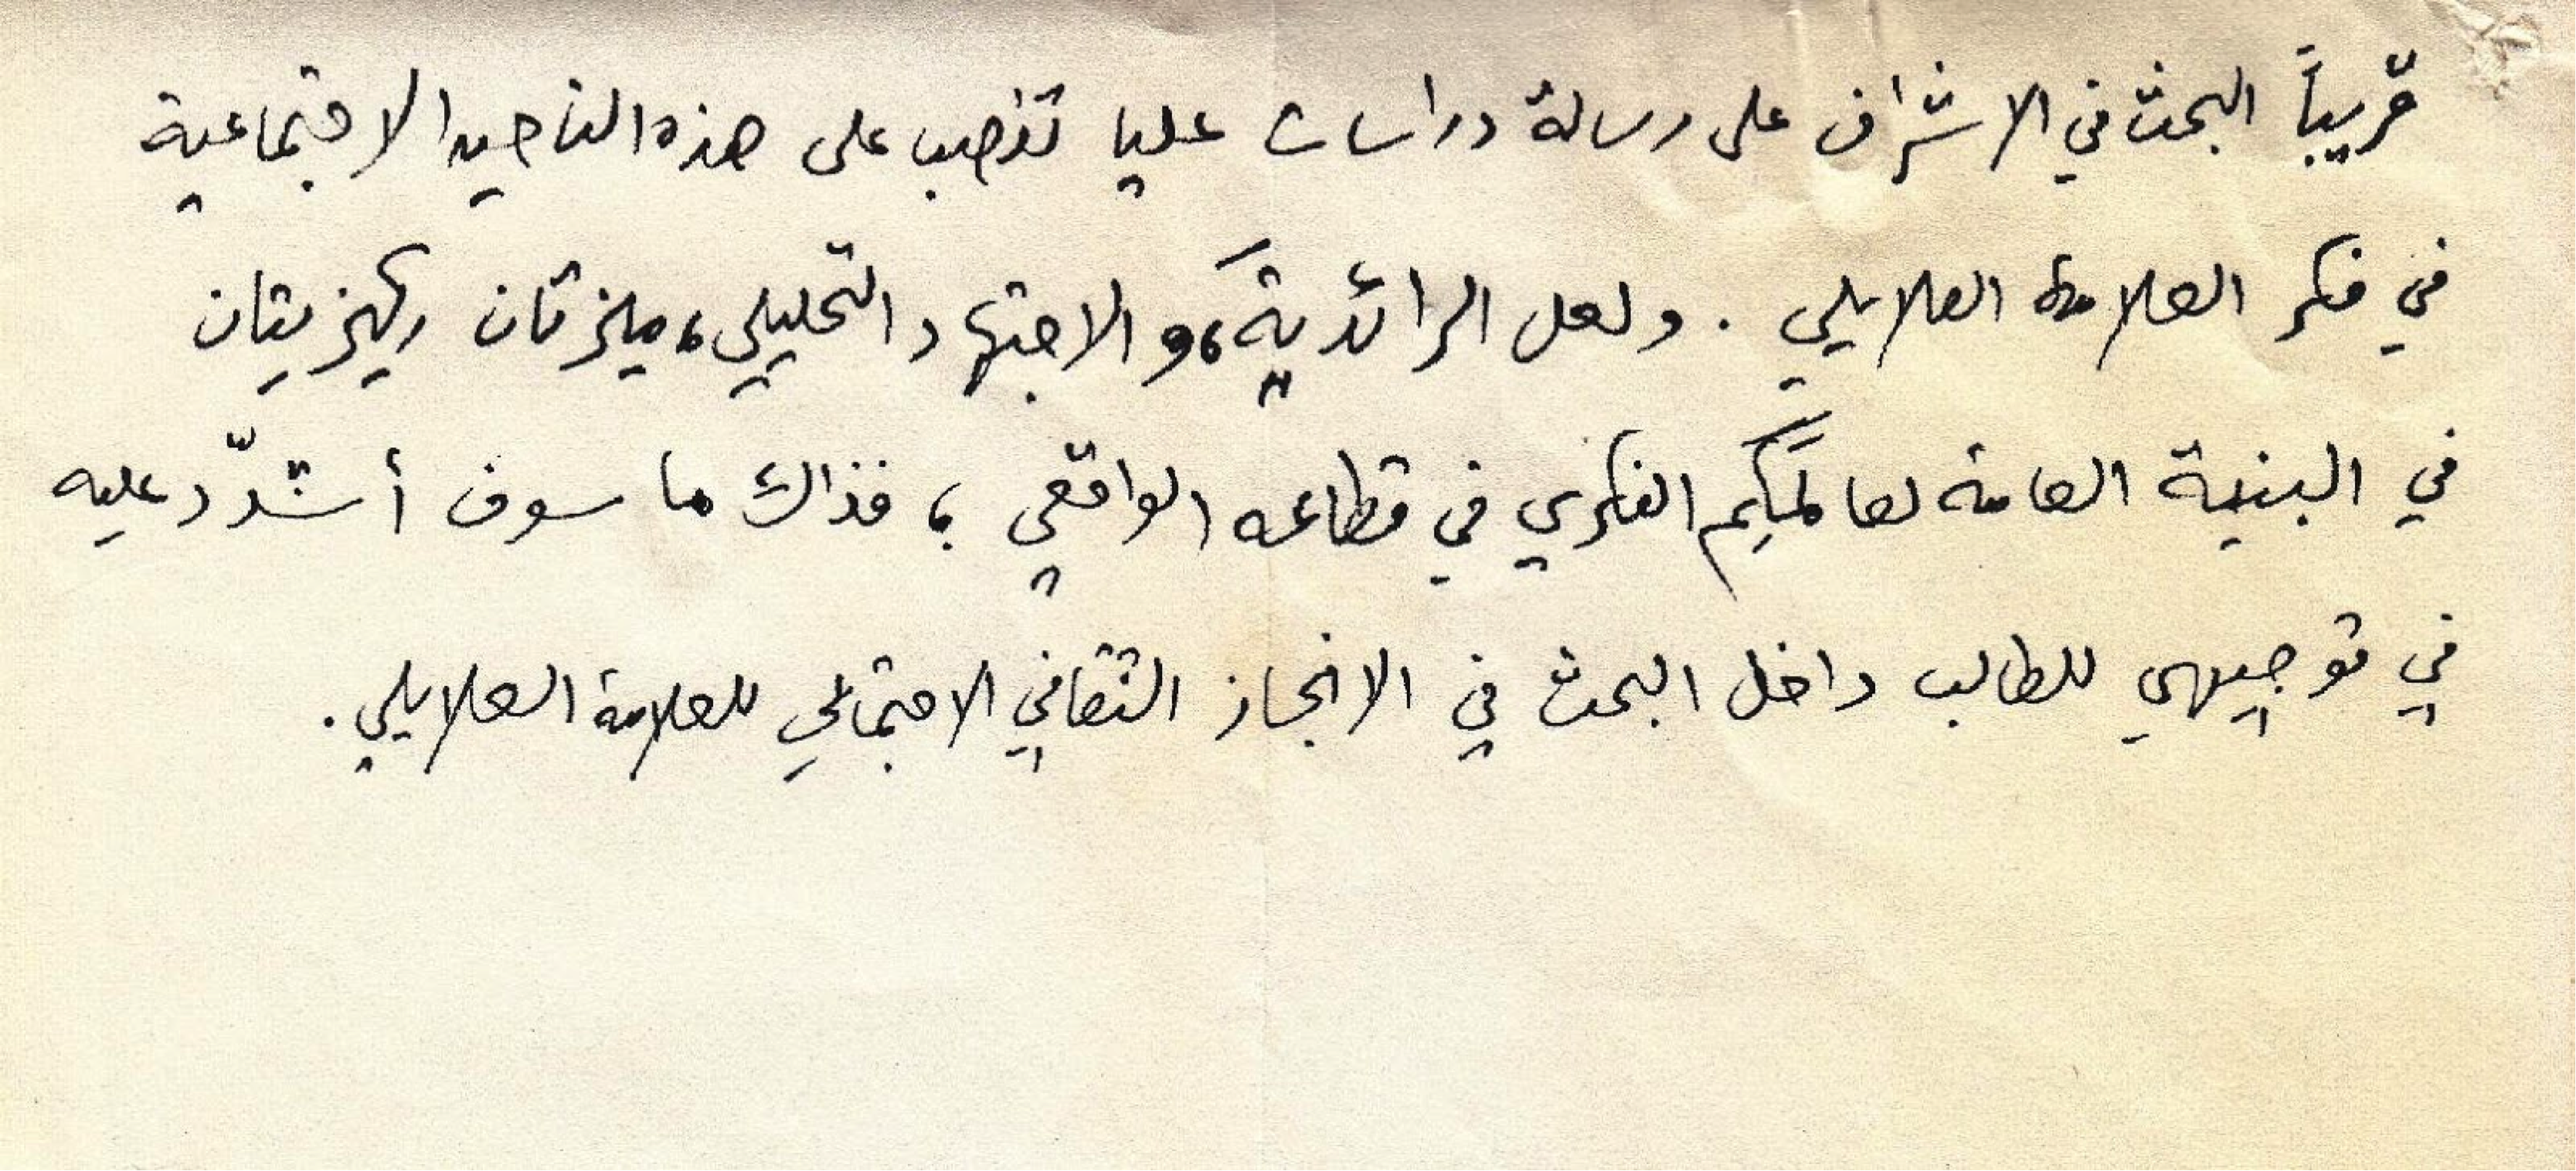 قريباً البحث في الاشراف على رسالة دراسات عليا تنصب على هذه الناحية الاجتماعية
في فكر العلامة العلايلي . ولعل الرائديةَ، والاجتهاد التحليلي، ميزتان ركيزيتان
في البنية العامة لعالَمِكم الفكري في قطاعه الواقعي ؛ فذاك ما سوف أشدّد عليه
في توجيهي للطالب داخل البحث في الانجاز الثقافي الاجتماعي للعلامة العلايلي .